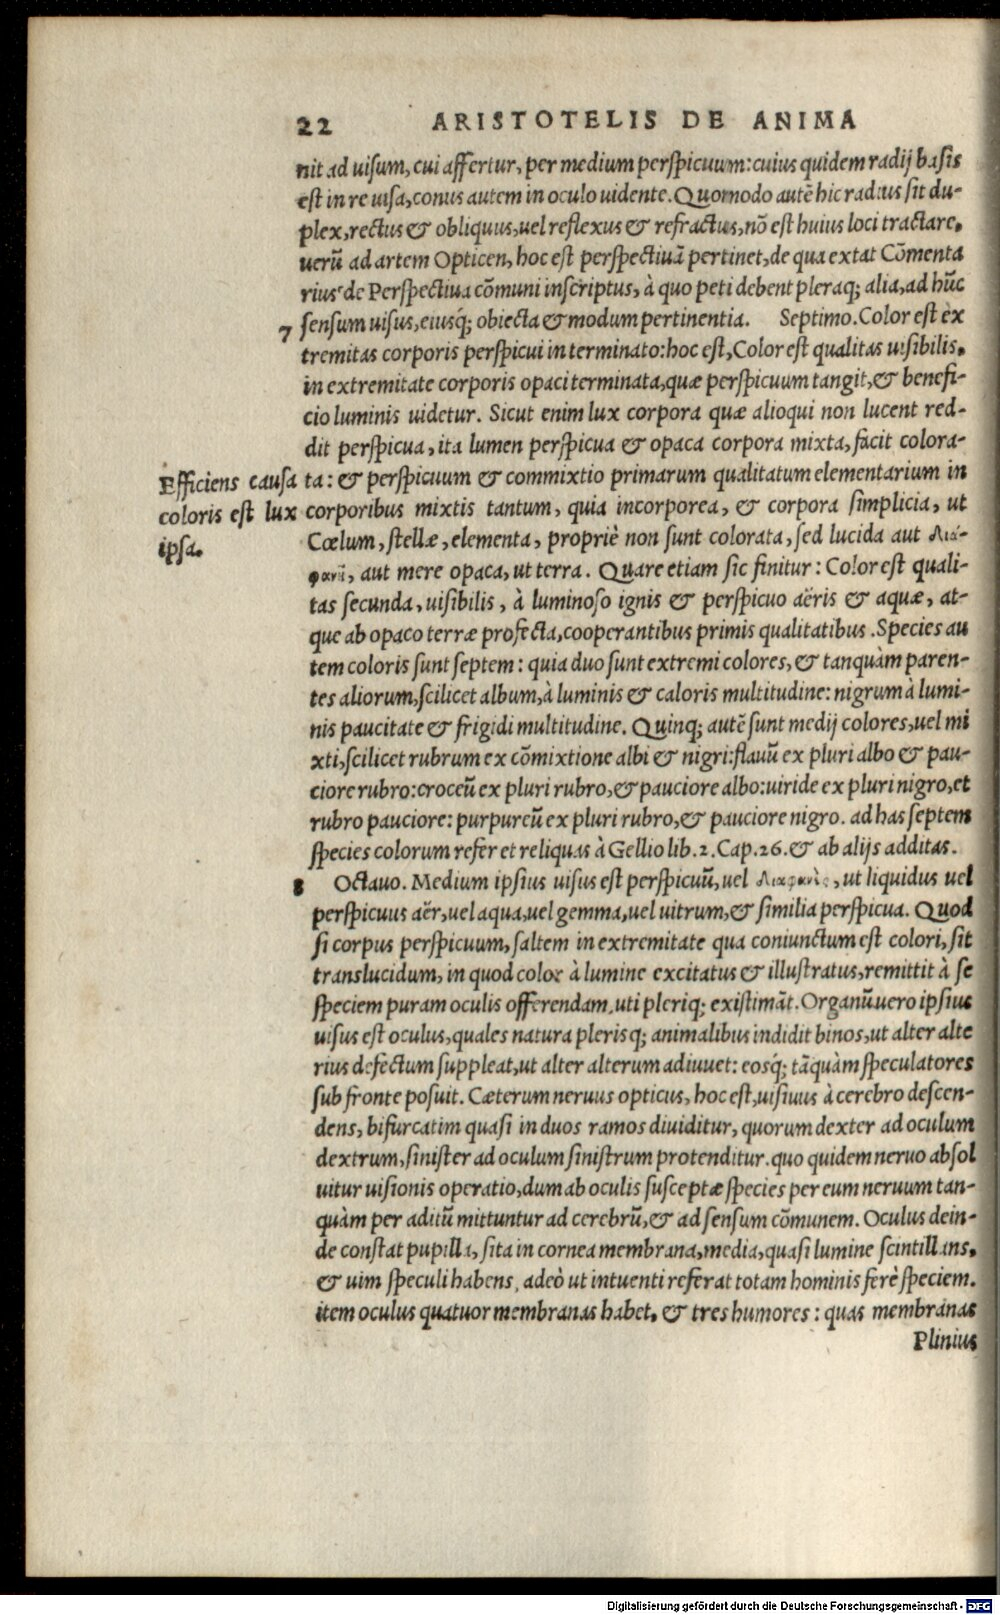 22 ARISTOTELIS DE ANIMA
nit ad uisum, cui affertur, per medium perspicuum: cuius quidem radij basis
est in re uisa, conus autem in oculo uidente. Quomodo autē hic radius sit du-
plex, rectus & obliquus, uel reflexus & refractus, nō est huius loci tractare,
uerū ad artem Opticen, hoc est perspectiuā pertinet, de qua extat Cōmenta
rius de Perspectiua cōmuni inscriptus, à quo peti debent pleraq; alia, ad hūc
7 sensum uisus, eiusq́; obiecta & modum pertinentia. Septimo. Color est ex
tremitas corporis perspicui in terminato: hoc est, Color est qualitas uisibilis,
in extremitate corporis opaci terminata, quæ perspicuum tangit, & benefi-
cio luminis uidetur. Sicut enim lux corpora quæ alioqui non lucent red-
dit perspicua, ita lumen perspicua & opaca corpora mixta, facit colora-
Efficiens causa
coloris est lux
ipsa.
ta: & perspicuum & commixtio primarum qualitatum elementarium in
corporibus mixtis tantum, quia incorporea, & corpora simplicia, ut
Cœlum, stellæ, elementa, propriè non sunt colorata, sed lucida aut Δια-
φανῆ, aut mere opaca, ut terra. Quare etiam sic finitur: Color est quali-
tas secunda, uisibilis, à luminoso ignis & perspicuo aëris & aquæ, at-
que ab opaco terræ profecta, cooperantibus primis qualitatibus. Species au
tem coloris sunt septem: quia duo sunt extremi colores, & tanquàm paren-
tes aliorum, scilicet album, à luminis & caloris multitudine: nigrum à lumi-
nis paucitate & frigidi multitudine. Quinq; autē sunt medij colores, uel mi
xti, scilicet rubrum ex cōmixtione albi & nigri: flauū ex pluri albo & pau-
ciore rubro: croceū ex pluri rubro, & pauciore albo: uiride ex pluri nigro, et
rubro pauciore: purpureū ex pluri rubro, & pauciore nigro. ad has septem
species colorum refer et reliquas à Gellio lib. 2. Cap. 26. & ab alijs additas.
8 Octauo. Medium ipsius uisus est perspicuū, uel Διαφανὲς, ut liquidus uel
perspicuus aër, uel aqua, uel gemma, uel uitrum, & similia perspicua. Quod
si corpus perspicuum, saltem in extremitate qua coniunctum est colori, sit
translucidum, in quod color à lumine excitatus & illustratus, remittit à se
speciem puram oculis offerendam, uti pleriq; existimāt. Organū uero ipsius
uisus est oculus, quales natura plerisq; animalibus indidit binos, ut alter alte
rius defectum suppleat, ut alter alterum adiuuet: eosq́; tāquàm speculatores
sub fronte posuit. Cæterum neruus opticus, hoc est, uisiuus à cerebro descen-
dens, bifurcatim quasi in duos ramos diuiditur, quorum dexter ad oculum
dextrum, sinister ad oculum sinistrum protenditur. quo quidem neruo absol
uitur uisionis operatio, dum ab oculis susceptæ species per eum neruum tan-
quàm per aditū mittuntur ad cerebrū, & ad sensum cōmunem. Oculus dein-
de constat pupilla, sita in cornea membrana, media, quasi lumine scintillans,
& uim speculi habens, adeò ut intuenti referat totam hominis ferè speciem.
item oculus quatuor membranas habet, & tres humores: quas membranas
Plinius
Digitalisierung gefördert durch die Deutsche Forschungsgemeinschaft - DFG